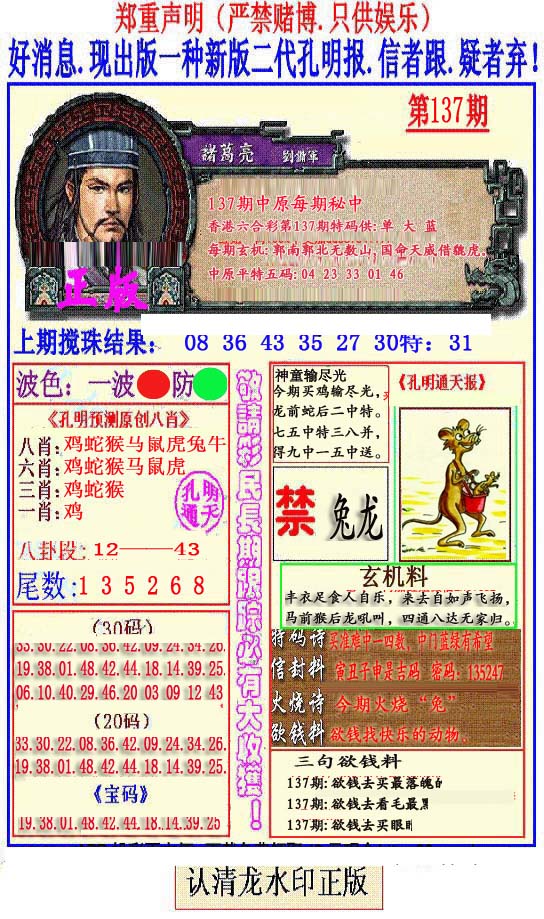 郑重声明（严禁赌博.只供娱乐）
好消息.现出版一种新版二代孔明报.信者跟.疑者弃！
第137期
諸葛亮 劉備軍
137期中原每期秘中
香港六合彩第137期特码供:单 大 蓝
每期玄机:郭南郭北无数山,国命天威借魏虎.
中原平特五码:04 23 33 01 46
正版
上期搅珠结果： 08 36 43 35 27 30特：31
波色：一波 防
《孔明预测原创八肖》
八肖:鸡蛇猴马鼠虎兔牛
六肖:鸡蛇猴马鼠虎
三肖:鸡蛇猴
一肖:鸡
孔明通天
八卦段：12——43
尾数:1 3 5 2 6 8
（30码）
33.30.22.08.36.42.09.24.34.26.
19.38.01.48.42.44.18.14.39.25.
06.10.40.29.46.20 03 09 12 43
（20码）
33.30.22.08.36.42.09.24.34.26.
19.38.01.48.42.44.18.14.39.25.
《宝码》
19.38.01.48.42.44.18.14.39.25
敬請彩民長期跟踪必有大收獲！
神童输尽光
今期买鸡输尽光,
龙前蛇后二中特。
七五中特三八并,
得九中一五中送。
《孔明通天报》
禁 兔龙
玄机料
丰衣足食人自乐，来去自如声飞扬,
马前猴后龙吼叫，四通八达无家归。
特码诗 买准难中一四数，中门蓝绿有希望
信封料 寅丑子申是吉码 密码：135247
火烧诗 今期火烧“兔”
欲钱料 欲钱找快乐的动物.
三句欲钱料
137期:欲钱去买最落魄的
137期:欲钱去看毛最
137期:欲钱去买眼
认清龙水印正版